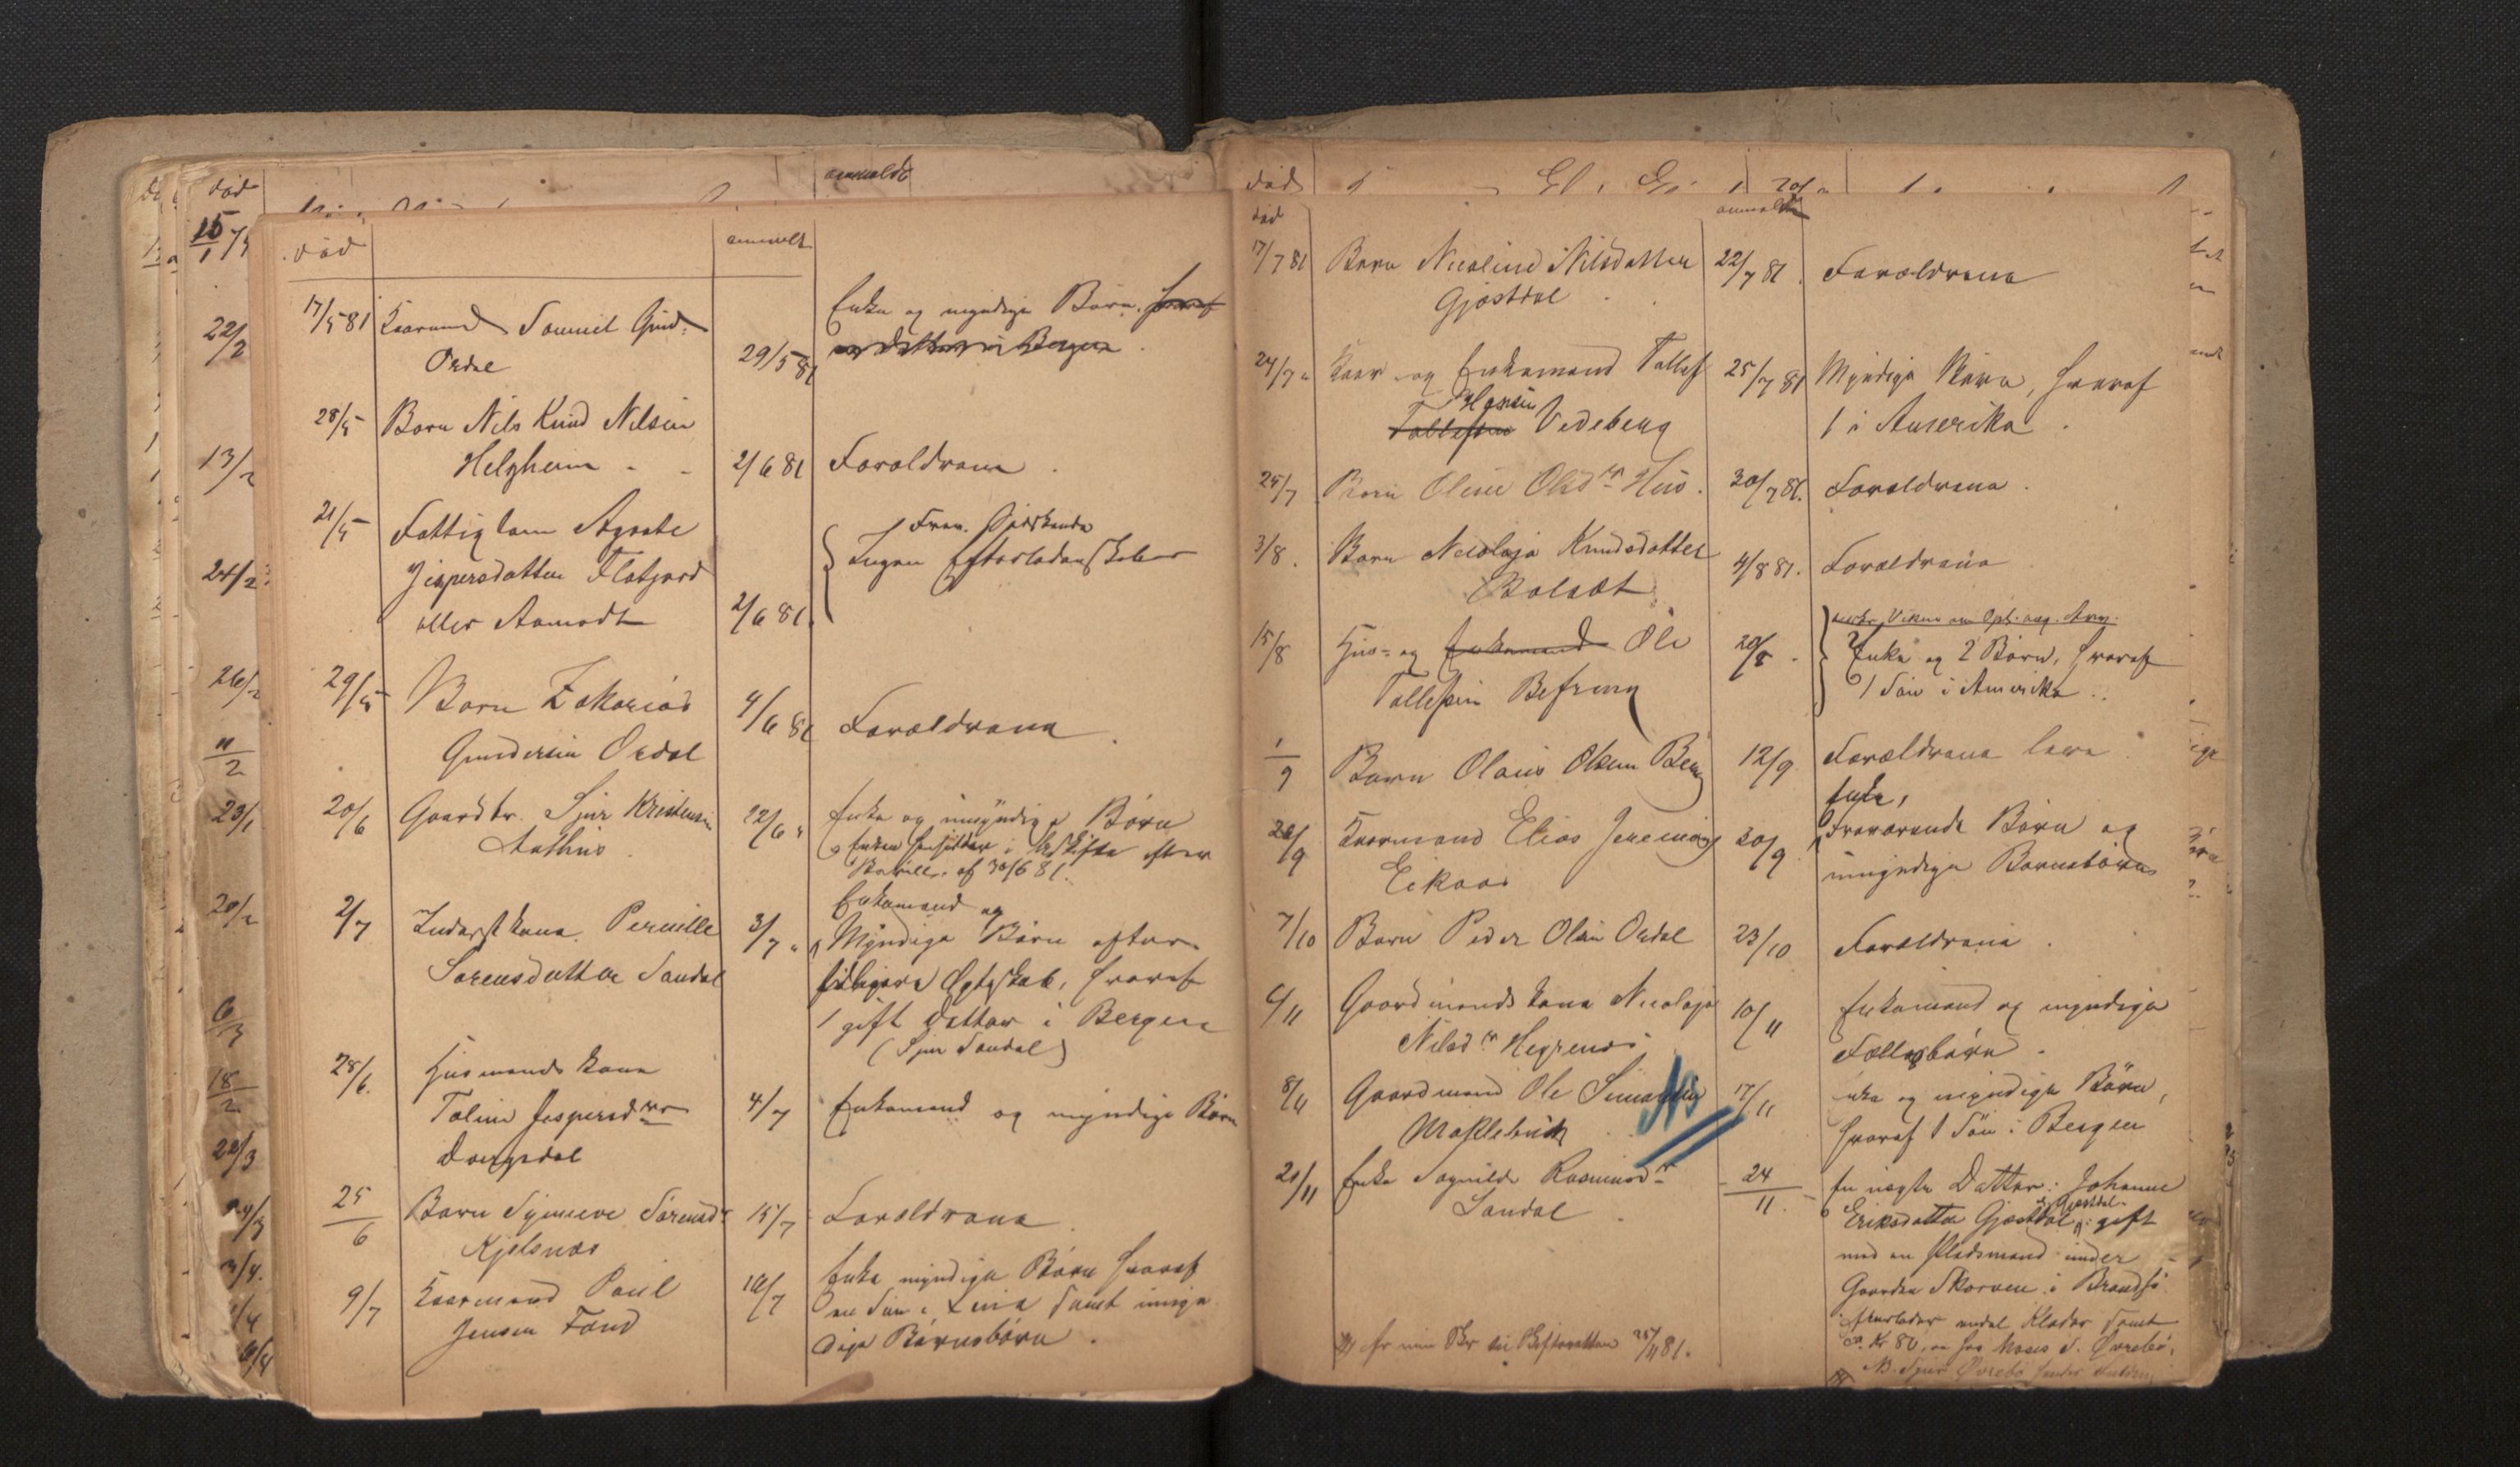 død
anmeldt
17/5 81 Kaarmand Samuel Gund.
Ordal
29/5 81
Enke og myndige Børn. hvoraf
en datter i Bergen
28/5 Barn Nils Knud Nilsen
Helgheim
2/6 81 Forældrene
21/5 Fattiglem Agathe
Jespersdatter Flatjord
eller Aamodt
2/6 81.
Ingen Efterladenskaber
29/5 Barn Zakarias
Gundersen Ordal
4/6 81 Forældrene
20/6 Gaardbr. Sjur Kristensen
Aathus
22/6 " Enke og umyndige Børn
Enken hensidder i uskiftet efter
Bevill. af 30/6 81.
2/7 Inderstkone Pernille
Sørensdatter Sandal
3/7 " Enkemand og
Myndige Børn efter
tidligere Ægteskab, hvoraf
1 gift Datter i Bergen
(Sjur Sandal)
28/6. Husmands kone
Taline Jespersdtr
Dvergsdal
4/7 Enkemand og myndige Børn
25/6 Barn Synneve Sørensdr
Kjøsnæs
15/7 Forældrene
9/7 Kaarmand Paul
Jensen Fond
14/7 Enke myndige Børn hvoraf
en Søn i samt umyn
dige Børnebørn.
død
anmeldt
17/7 81 Barn Nicoline Nilsdatter
Gjøstdal
22/7 81. Forældrene
24/7 " Kaar og Enkemand Tollef
Hansen
Tollefsen Vedeberg
25/7 81 Myndige Børn, hvoraf
1 i Amerika.
25/7 Barn Oline Olsdtr Hus.
30/7 81. Forældrene.
3/8. Barn Nicoloja Knudsdatter
Bolsæt
4/8 81. Forældrene
15/8 Hus- og Enkemand Ole
Tollefsen Befring
20/8.
Enke og 2 Børn, hvoraf
1 Søn i Amerika.
1/9 Barn Olaus Olsen Berg
12/9 Forældrene leve
26/9 Kaarmand Elias Jeremias
Eikaas
30/9 Enke,
Fraværende Børn og
umyndige Barnebørn
7/10 Barn Peder Olsen Ordal
23/10 Forældrene.
6/11 Gaardmands kone Nicoloja
Nilsdtr Hegrenæs
10/11 Enkemand og myndige
Fællesbørn.
8/11 Gaardmand Ole Simonsen
Møklebust
No
17/11 Enke og myndige Børn,
hvoraf 1 Søn i Bergen
21/11 Enke Ragnilde Rasmusdtr
Sandal
24/11. En uægte Datter: Johanne
Eriksdatter Gjøstdal gift
med en Pladsmand under
Gaarden Skorven i Brandsø.
efterlader endel Klæder samt
Kr 80, en hos Moses S. Øvrebø.
NB. Sjur Øvrebø
25/11 81.